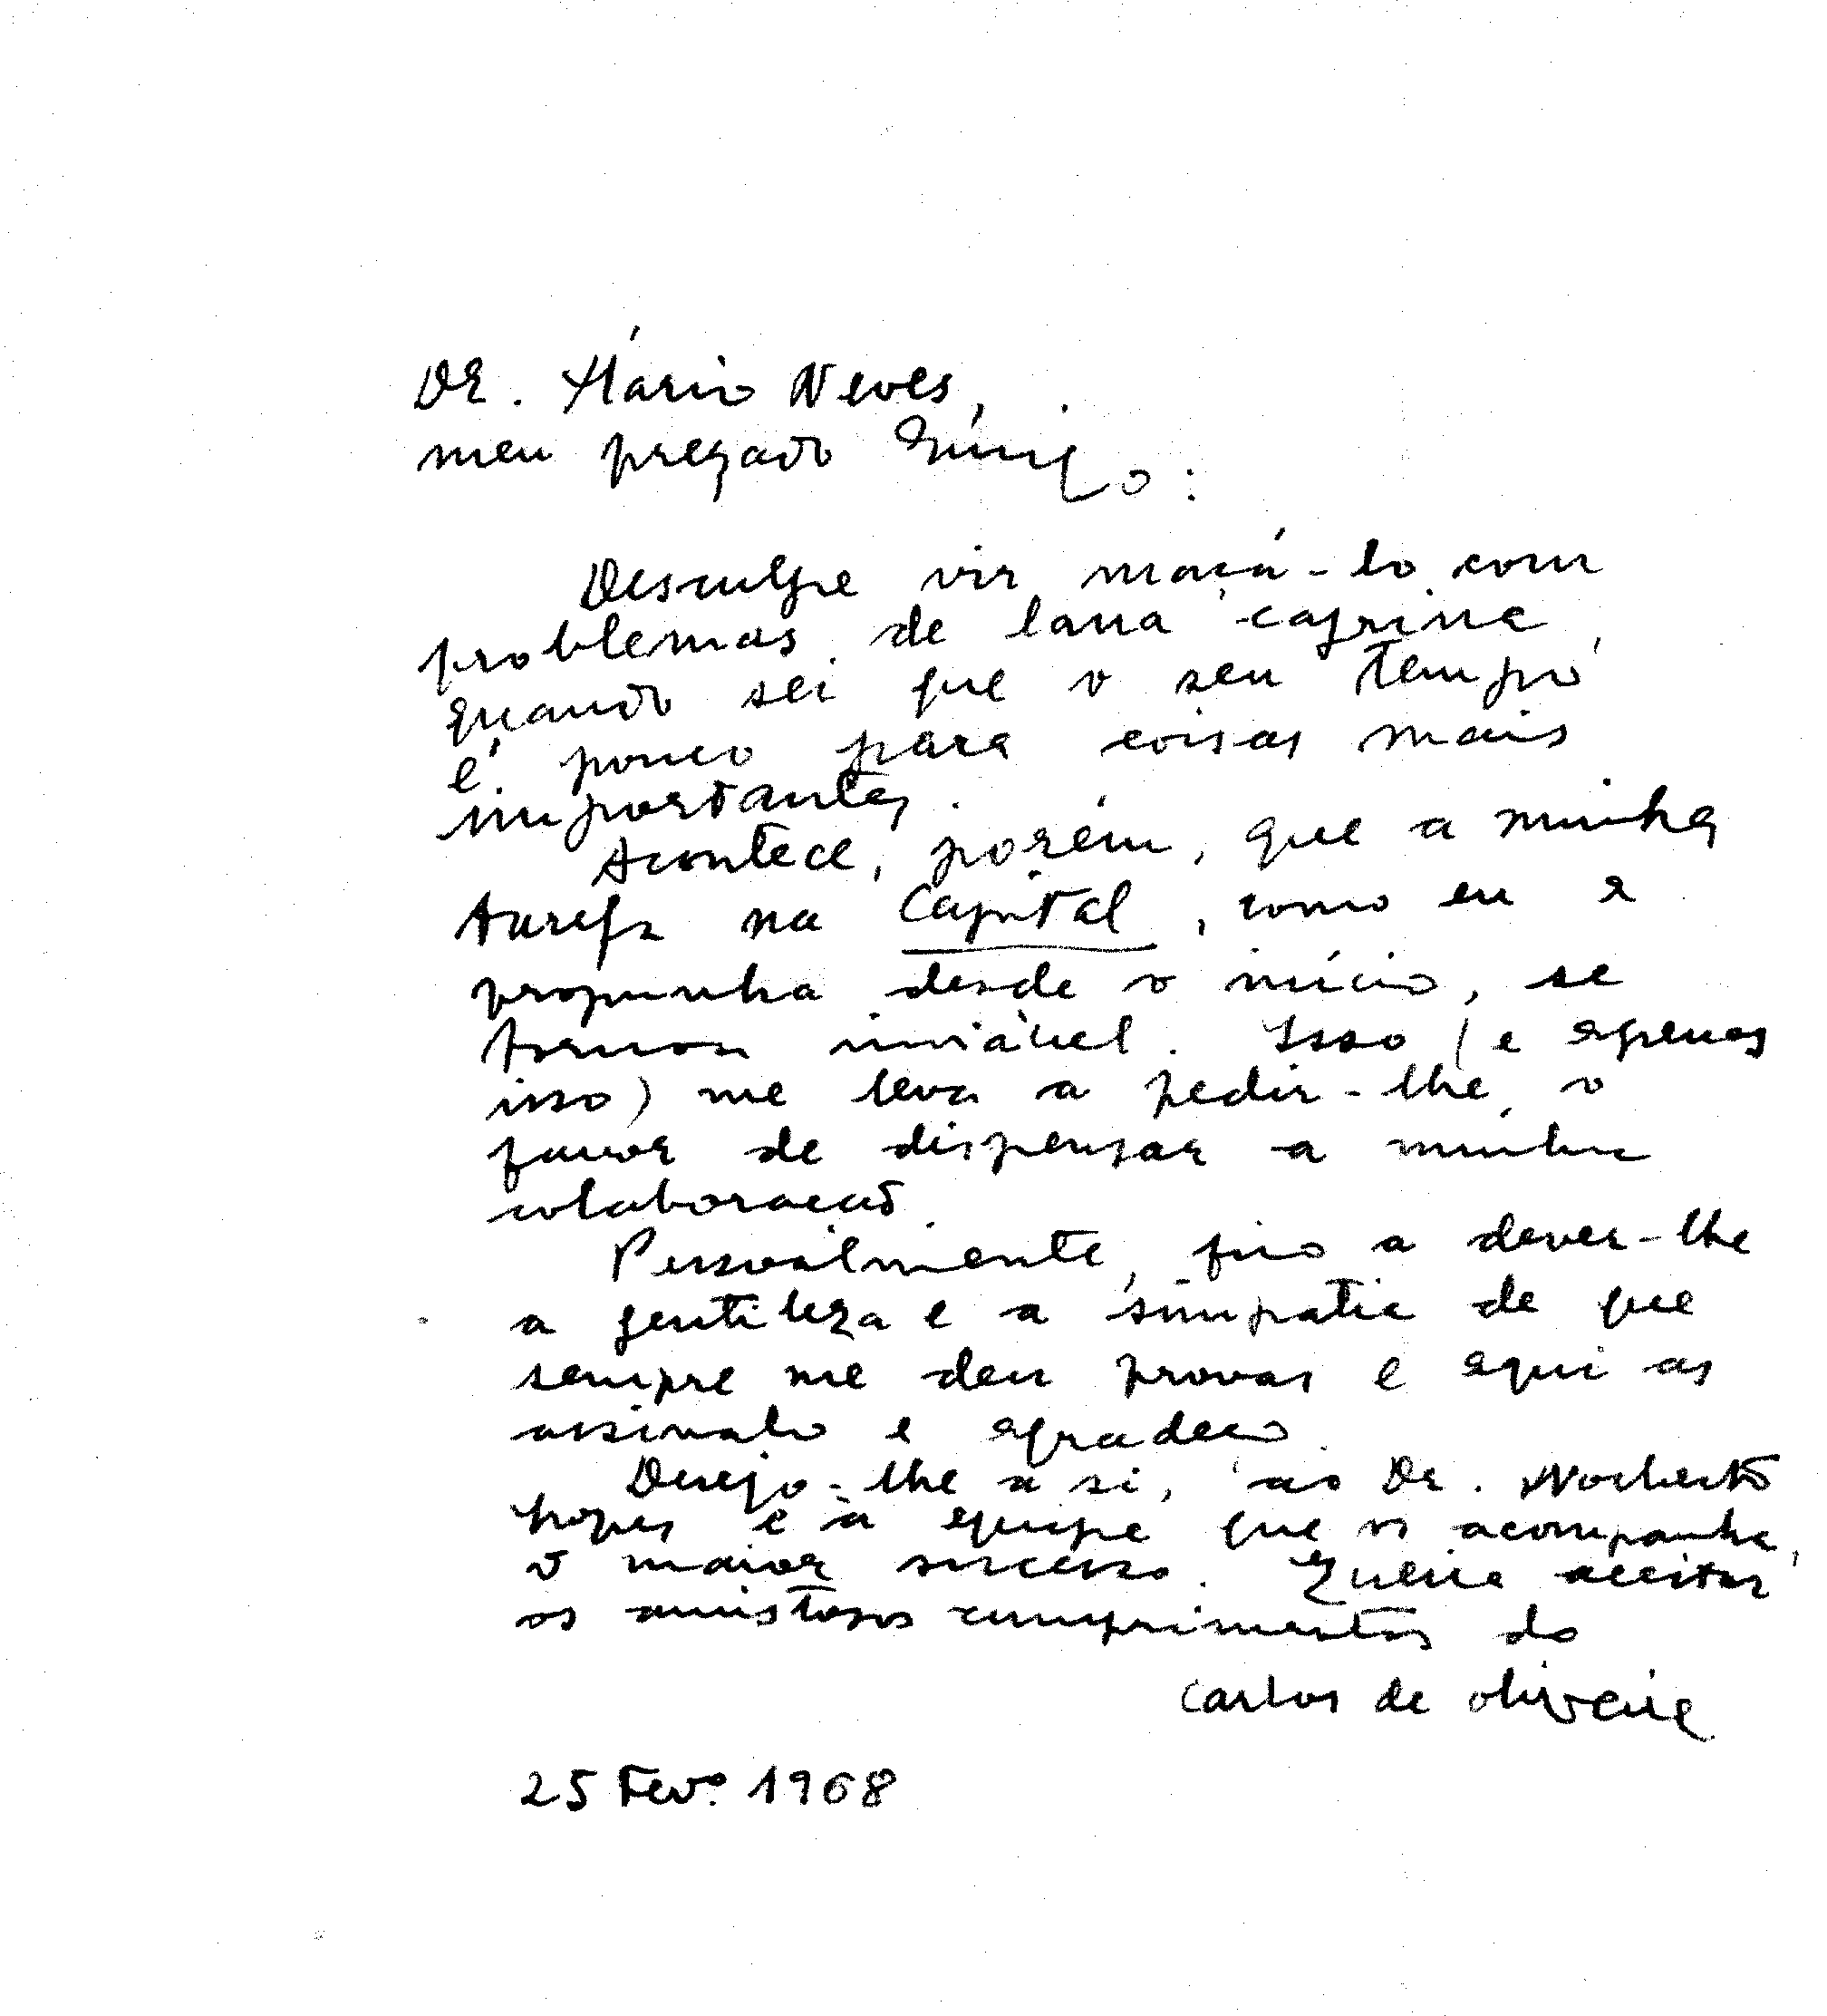 Dr. Mário Neves,
meu prezado Amigo:
Desculpe vir maçá-lo com
problemas de lana caprina,
quando sei que o seu tempo
é pouco para coisas mais
importantes.
Acontece, porém, que a minha
tarefa na Capital, como eu a
propunha desde o início, se
tornou inviável. Isso (e apenas
isso) me leva a pedir-lhe o
favor de dispensar a minha
colaboração.
Pessoalmente, fico a dever-lhe
a gentileza e a simpatia de que
sempre me deu provas e aqui as
assinalo e agradeço.
Desejo-lhe a si, ao Dr. Norberto
Lopes e à equipe que os acompanha,
o maior sucesso. Queira aceitar
os amistosos cumprimentos do
Carlos de Oliveira
25 Fev.º 1968